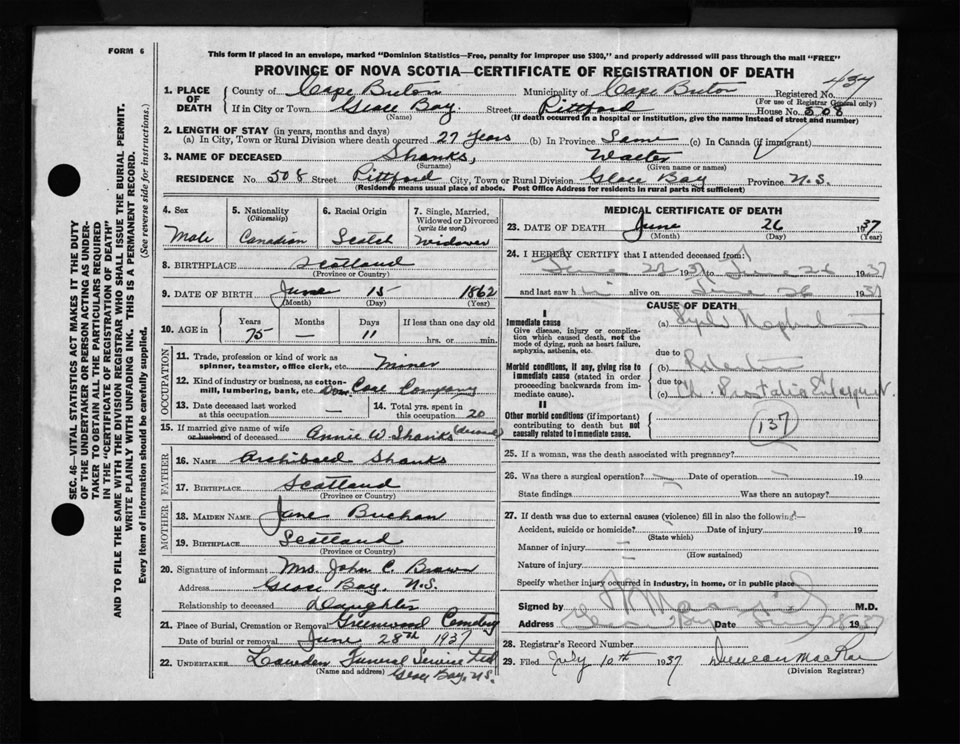 FORM 6
This form if placed in an envelope, marked "Dominion Statistics—Free, penalty for improper use $300," and properly addressed will pass through the mail "FREE"
PROVINCE OF NOVA SCOTIA—CERTIFICATE OF REGISTRATION OF DEATH
437
1. PLACE OF DEATH County of Cape Breton Municipality of Cape Breton Registered No.
(For use of Registrar General only)
If in City or Town Glace Bay. Street Pittford House No. 508
(Name) (If death occurred in a hospital or institution, give the name instead of street and number)
2. LENGTH OF STAY (in years, months and days)
(a) In City, Town or Rural Division where death occurred 27 years (b) In Province Same (c) In Canada (if immigrant)
3. NAME OF DECEASED Shanks, Walter
(Surname) (Given name or names)
RESIDENCE No. 508 Street Pittford City, Town or Rural Division Glace Bay Province N.S.
(Residence means usual place of abode. Post Office Address for residents in rural parts not sufficient)
SEC. 46—VITAL STATISTICS ACT MAKES IT THE DUTY
OF THE UNDERTAKER OR PERSON ACTING AS UNDER-
TAKER TO OBTAIN ALL THE PARTICULARS REQUIRED
IN THE "CERTIFICATE OF REGISTRATION OF DEATH"
AND TO FILE THE SAME WITH THE DIVISION REGISTRAR WHO SHALL ISSUE THE BURIAL PERMIT.
WRITE PLAINLY WITH UNFADING INK. THIS IS A PERMANENT RECORD.
Every item of information should be carefully supplied. (See reverse side for instructions.)
4. Sex Male
5. Nationality (Citizenship) Canadian
6. Racial Origin Scotch
7. Single, Married, Widowed or Divorced (write the word) Widower
8. BIRTHPLACE Scotland
(Province or Country)
9. DATE OF BIRTH June 15 1862
(Month) (Day) (Year)
10. AGE in Years 75 Months — Days 11 If less than one day hrs. or min.
OCCUPATION
11. Trade, profession or kind of work as spinner, teamster, office clerk, etc. Miner
12. Kind of industry or business, as cotton-mill, lumbering, bank, etc. Dom. Coal Company
13. Date deceased last worked at this occupation —
14. Total yrs. spent in this occupation 20
15. If married give name of wife or husband of deceased Annie W. Shanks
FATHER
16. NAME Archibald Shanks
17. BIRTHPLACE Scotland
(Province or Country)
MOTHER
18. MAIDEN NAME Jane Buchan
19. BIRTHPLACE Scotland
(Province or Country)
20. Signature of informant Mrs. John C. Brown
Address Glace Bay, N.S.
Relationship to deceased Daughter
21. Place of Burial, Cremation or Removal Greenwood Cemetery
Date of burial or removal June 28th 1937
22. UNDERTAKER Funeral Service Ltd
(Name and address) Glace Bay, N.S.
MEDICAL CERTIFICATE OF DEATH
23. DATE OF DEATH June 26 1937
(Month) (Day) (Year)
24. I HEREBY CERTIFY that I attended deceased from:
June 23 1937 to June 26 1937
and last saw him alive on June 26 1937
CAUSE OF DEATH
I
Immediate cause
Give disease, injury or complication which caused death, not the mode of dying, such as heart failure, asphyxia, asthenia, etc.
(a)
due to
Morbid conditions, if any, giving rise to immediate cause (stated in order proceeding backwards from immediate cause).
(b)
due to
(c) Ch. Prostatic
II
Other morbid conditions (if important) contributing to death but not causally related to immediate cause.
137
25. If a woman, was the death associated with pregnancy?
26. Was there a surgical operation? Date of operation 19
State findings Was there an autopsy?
27. If death was due to external causes (violence) fill in also the following:—
Accident, suicide or homicide? Date of injury 19
(State which)
Manner of injury
(How sustained)
Nature of injury
Specify whether injury occurred in industry, in home, or in public place
Signed by M.D.
Address Glace Bay Date June 28 1937
28. Registrar's Record Number
29. Filed July 10th 1937 Duncan MacRae
(Division Registrar)